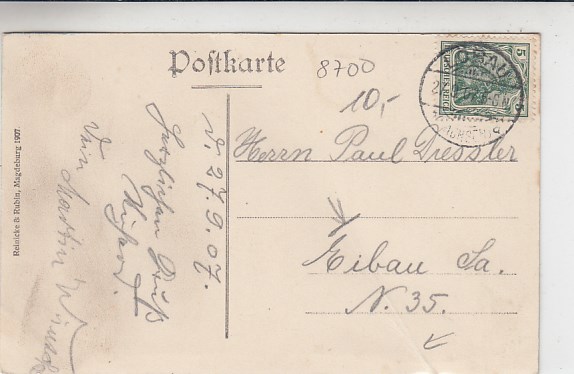 Postkarte
8700
10,-
5
LÖBAU
Herrn Paul Dressler
Eibau Sa.
N. 35.
d. 27.9.07.
Herzlichen Gruß
Richard.
Martin
Reinicke & Rubin, Magdeburg 1907.